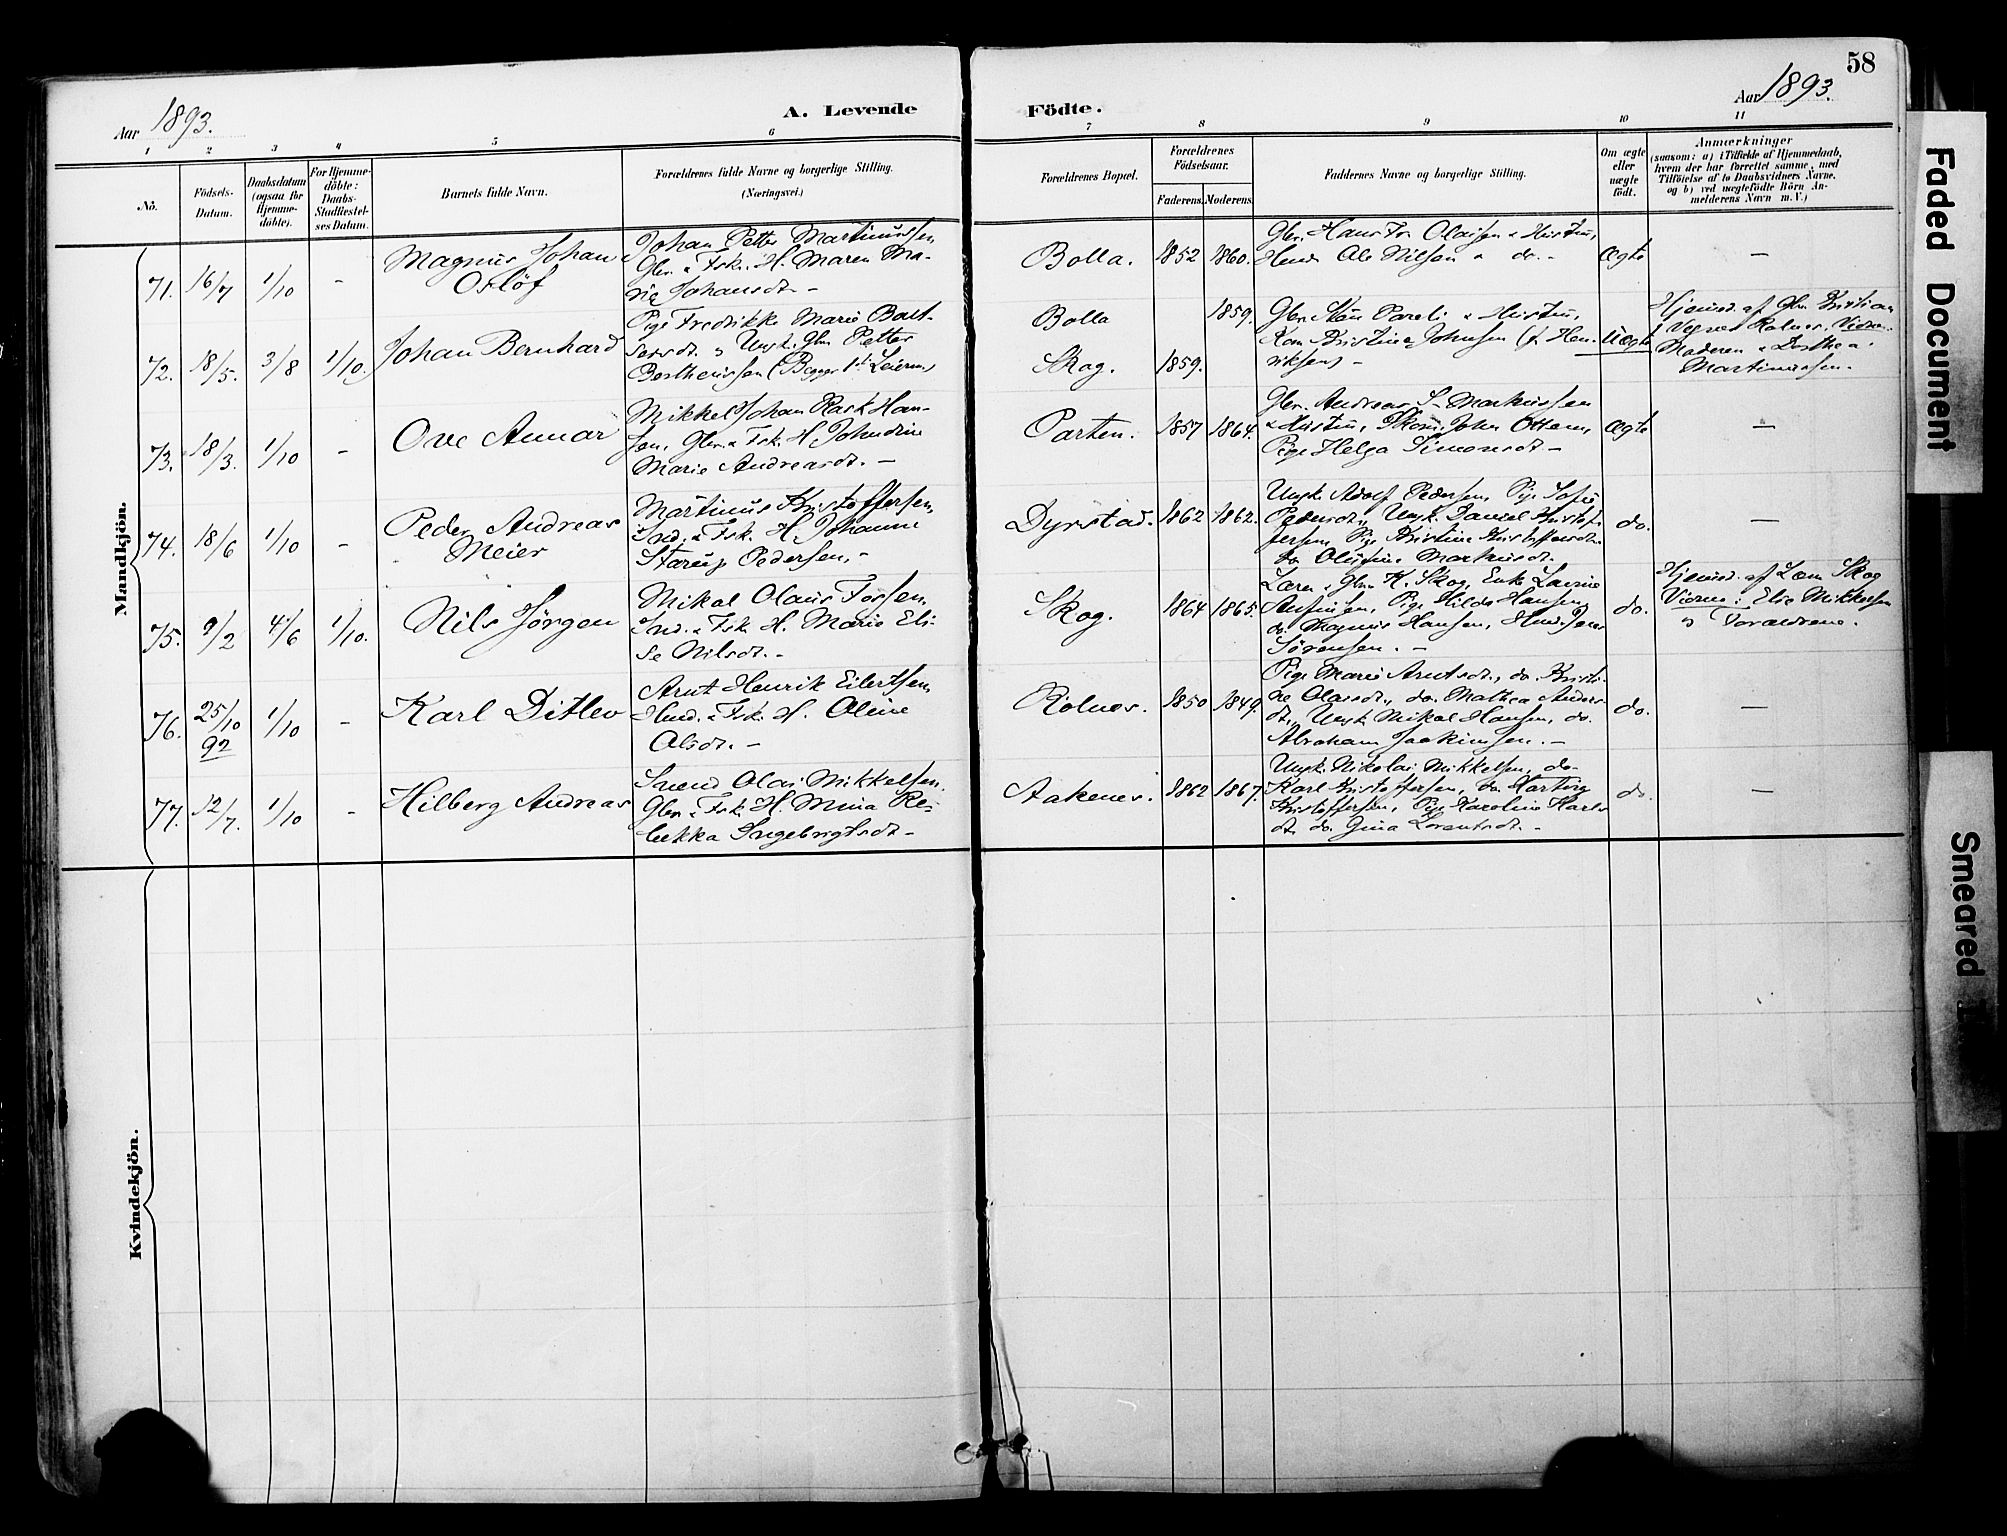 58
Aar 1893.
A. Levende Födte.
Aar 1893.
1 2 3 4 5 6 7 8 9 10 11
No.
Födsels-
Datum.
Daabsdatum
(ogsaa for
Hjemme-
döbte).
For Hjemme-
döbte:
Daabs-
Stadfæstel-
ses Datum.
Barnets fulde Navn.
Forældrenes fulde Navne og borgerlige Stilling.
(Næringsvei.)
Forældrenes Bopæl.
Forældrenes
Födselsaar.
Faderens. Moderens.
Faddernes Navne og borgerlige Stilling.
Om ægte
eller
uægte
födt.
Anmærkninger
(saasom: a) i Tilfælde af Hjemmedaab,
hvem der har forrettet samme, med
Tilföielse af to Daabsvidners Navne,
og b) ved uægtefödte Börn An-
melderens Navn m. V.)
Mandkjön.
71. 16/7 1/10 -
Magnus Johan
Osløf
Johan Petter Martinussen,
Gbr. & Fsk. H. Maren Ma-
rie Johansdt. -
Bolla. 1852 1860.
Gbr. Hans Fr. Olaisen & Hustru,
Husm. Ole Nilsen & do. -
Ægte
—
72. 18/5. 3/8 1/10.
Johan Bernhard
Pige Fredrikke Marie Bart-
&
Petter
Bertheussen (Begges 1ste Leierm.)
Bolla 1859.
Skog. 1859.
Kristine Johnsen (f. Hen-
riksen) -
Uægte
Hjemmed. af Gbr. Kristian
Vidn.
Moderen & Dorthea
Martinussen.
73. 18/3. 1/10 -
Ove Annar
Mikkel Johan Rask Han-
sen, Gbr. & Fsk. H. Johndine
Marie Andreasdt. -
Parten. 1857 1864.
Gbr. Andreas S. Markussen
& Hustru, John Ottesen,
Pige Helga Simonsdt -
Ægte
—
74. 18/6 1/10 -
Peder Andreas
Meier
Martinus Kristoffersen,
Ind. & Fsk. H. Johanne
Starup Pedersen. -
Dyrstad. 1862 1862.
Ungk. Adolf Pedersen, Pige Sofie
Pedersdt., Ungk. Daniel Kristof-
fersen, Pige Kristine Kristoffersdt.
do. Markusdt.
do.
—
75. 9/2 4/6 1/10.
Nils Jørgen
Mikal Olaus Torsen,
Ind. & Fsk. H. Marie Eli-
se Nilsdt. -
Skog. 1864 1865.
Skog, Enke Lavine
Pige Hilda Hansen,
do. Magnus Hansen,
Sørensen. -
do.
Hjemmed. af Skog
Vidne: Elie Mikkelsen
& Forældrene.
76. 25/10
92 1/10 -
Karl Ditlev
Arnt Henrik Eilertsen,
Husm. & Fsk. H. Oline
Olsdt. -
Rolnes. 1850 1849.
Pige Marie Arntsdt., do. Kristi-
ne Olasdt., do. Mathea Anders-
dt., Ungk. Mikal Hansen, do.
Abraham Joakimsen. -
do.
—
77. 12/7. 1/10 -
Hilberg Andreas
Svend Olai Mikkelsen,
Gbr. & Fsk. H. Mina Re-
bekka Ingebrigtsdt -
Aakenes. 1862 1867.
Ungk. Nikolai Mikkelsen, do.
Karl Kristoffersen, do. Hartvig
Kristoffersen, Pige Karoline Hans-
dt. do. Gina Lorentsdt. -
do.
—
Kvindekjön.
Faded Document
Smeared